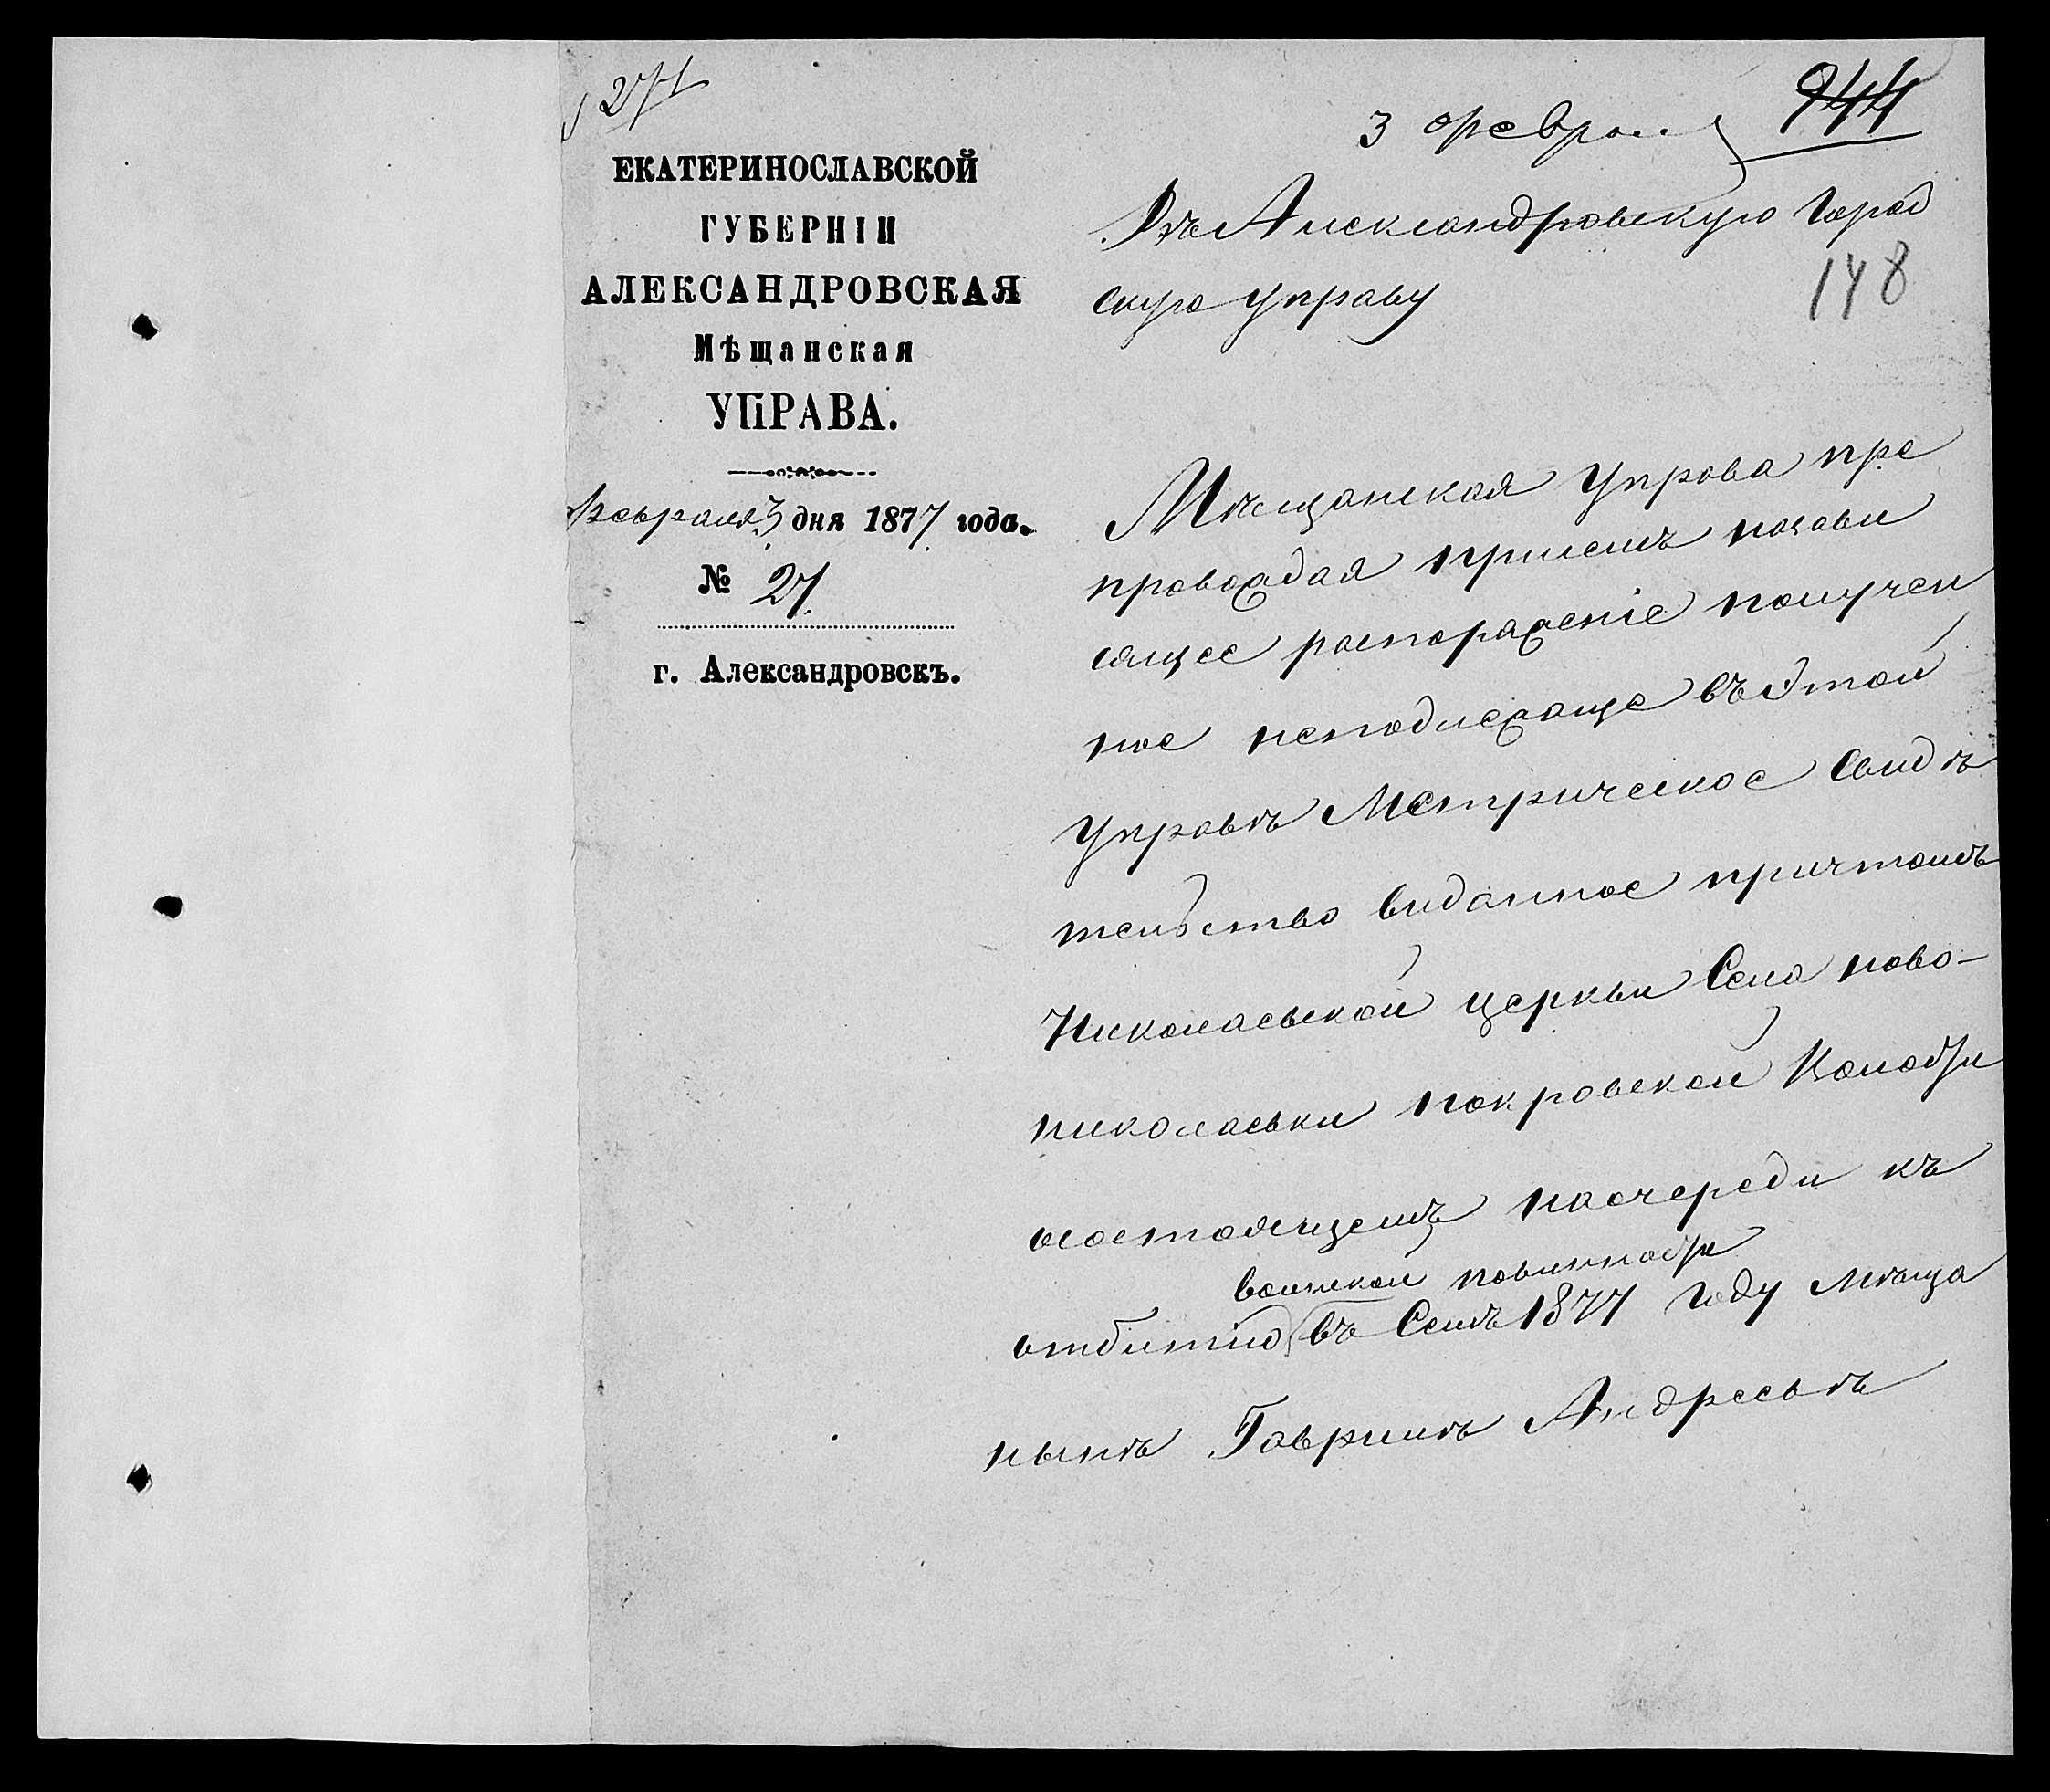 271
ЕКАТЕРИНОСЛАВСКОЙ
ГУБЕРНІИ
АЛЕКСАНДРОВСКАЯ
Мѣщанская
УПРАВА.
Февраля 3 дня 1877 года.
№ 27.
г. Александровскъ.
3 февра
944
Въ Александровскую Город
скую управу
148
Мѣщанская Управа пре
провождая присемъ позави
сящее распоряженіе получен
ное неподлежаще въ этой
Управѣ Метрическое Свидѣ
тельство виданное причтомъ
Николаевской церкви Села ново-
николаевки покровской Волости
состоящемъ наочереди къ
воинской повинности
отбитію въ Семъ 1877 году мѣща
нынѣ Гавриилѣ Андреевѣ